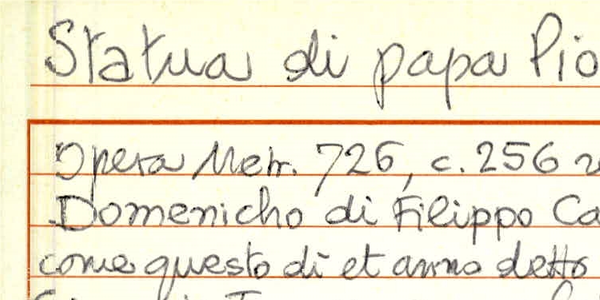 Statua di papa Pio
Opera Metr. 726, c. 256
Domenicho di Filippo Ca
come questo dì et anno detto